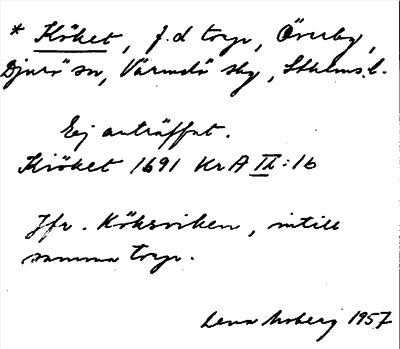 * Köket, f.d torp, Överby,
Djurö sn, Värmdö skg, Sthlms l.
Ej anträffat.
Kiöket 1691 KrA IX:16
Jfr. Köksviken, intill
samma torp.
Lena Moberg 1957